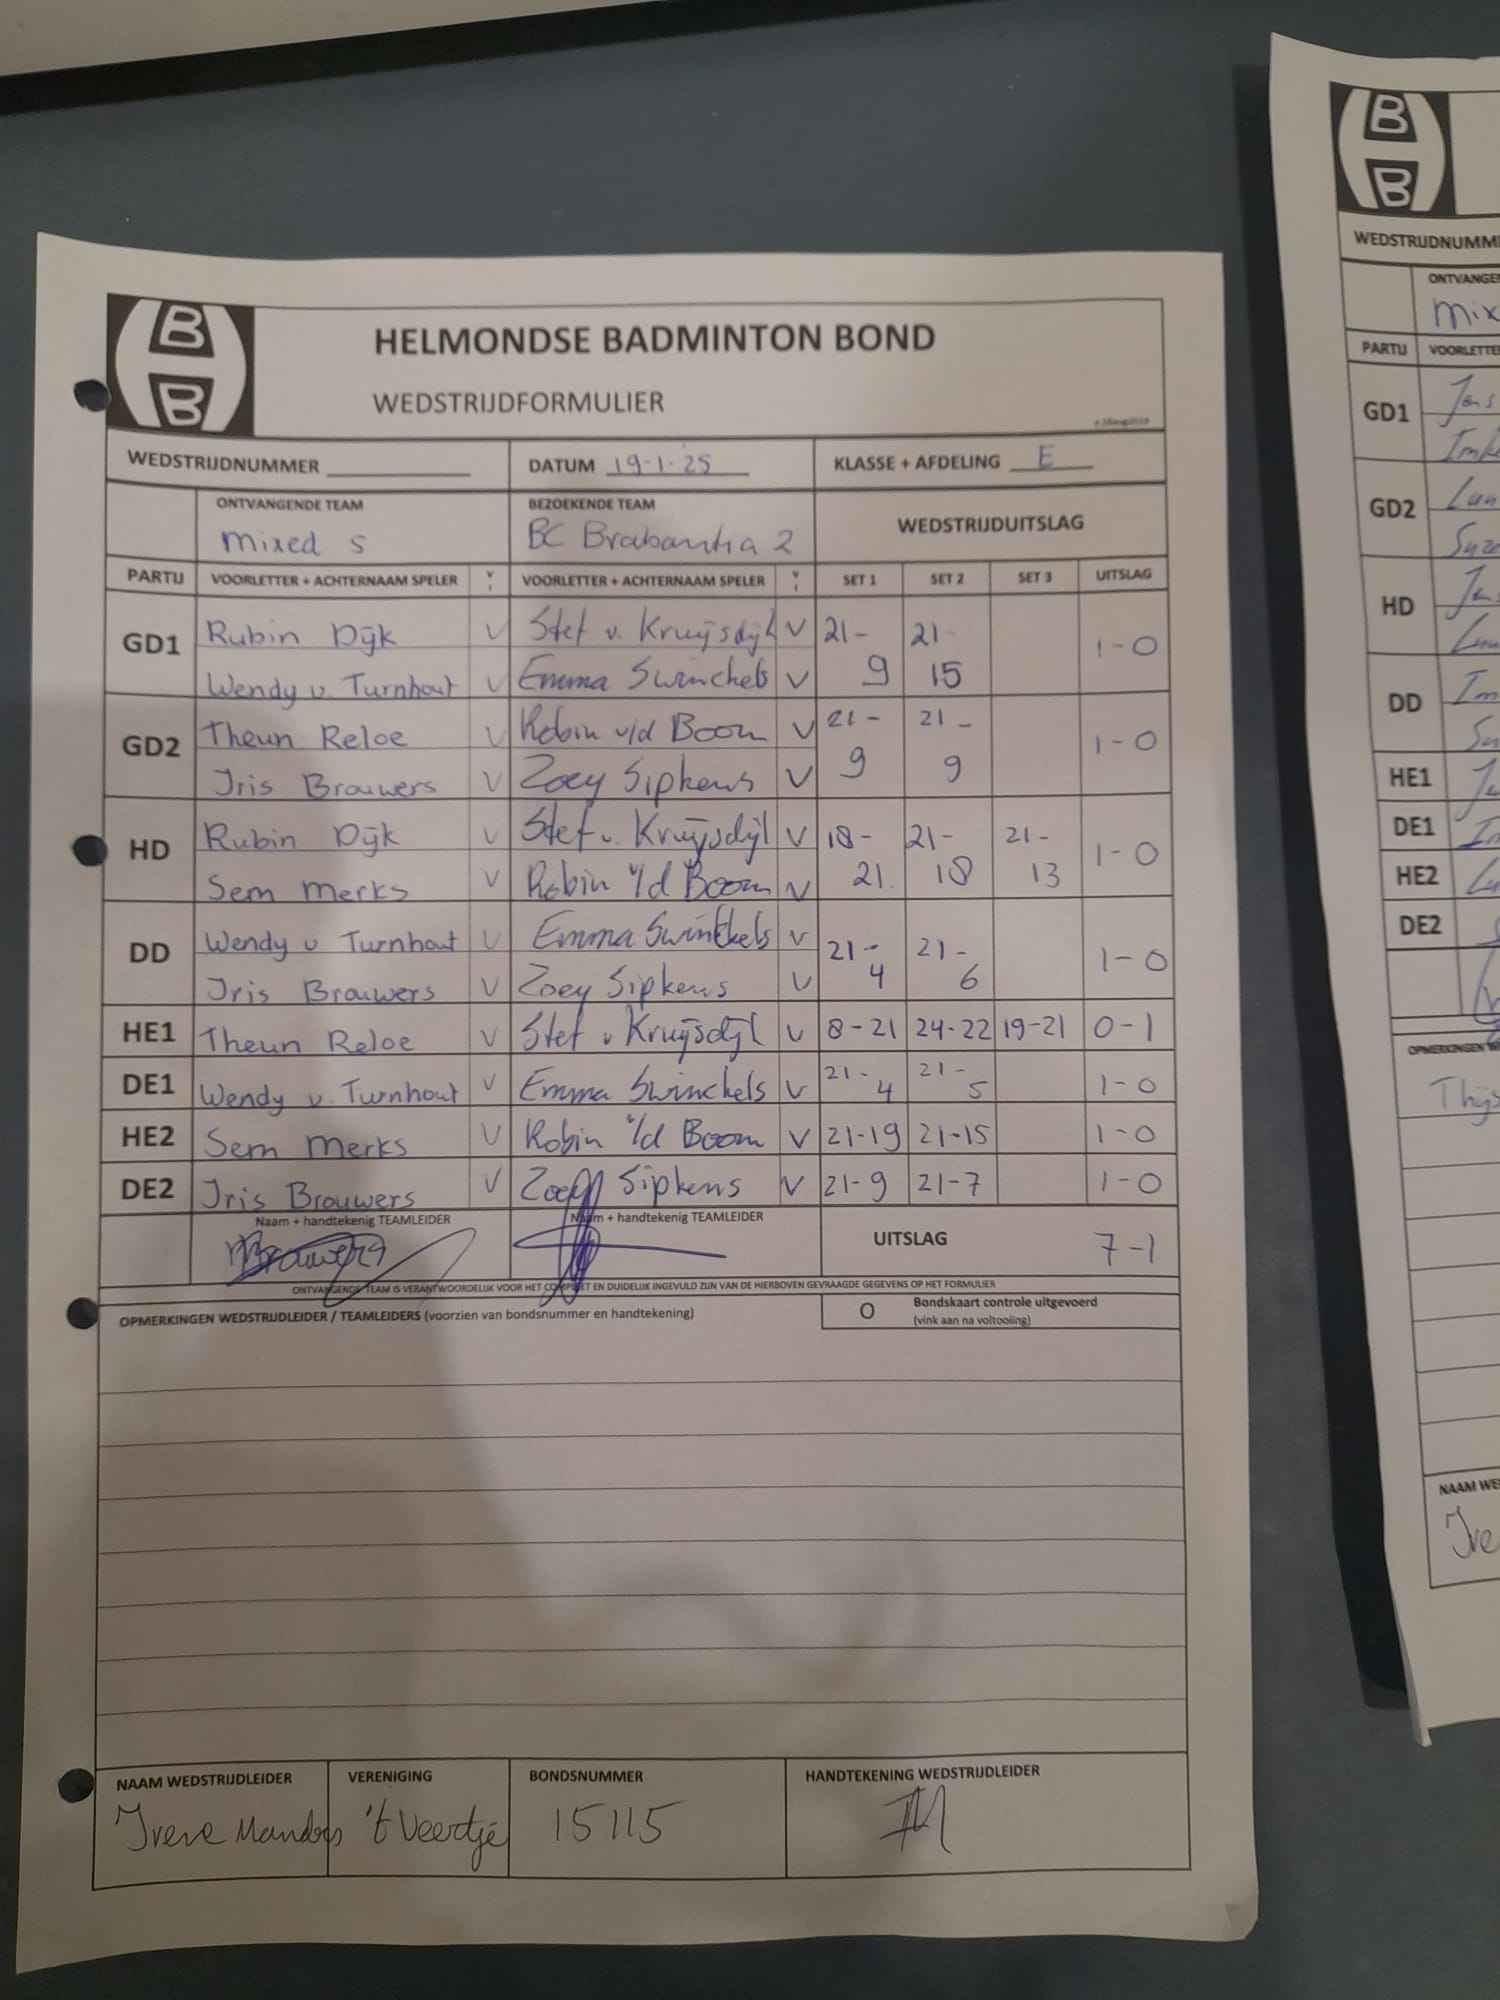 HELMONDSE BADMINTON BOND
WEDSTRIJDFORMULIER
WEDSTRIJDNUMMER DATUM 19-1-25 KLASSE + AFDELING E
ONTVANGENDE TEAM BEZOEKENDE TEAM WEDSTRIJDUITSLAG
Mixed 5 BC Brabantia 2
PARTIJ VOORLETTER + ACHTERNAAM SPELER V VOORLETTER + ACHTERNAAM SPELER V SET 1 SET 2 SET 3 UITSLAG
GD1 Rubin Dijk V Stef v. Kruijsdijk V 21- 21- 1-0
Wendy v. Turnhout V Emma Swinckels V 9 15
GD2 Theun Reloe V Robin v/d Boom V 21- 21- 1-0
Iris Brouwers V Zoey Sipkens V 9 9
HD Rubin Dijk V Stef v. Kruijsdijk V 18- 21- 21- 1-0
Sem Merks V Robin v/d Boom V 21 18 13
DD Wendy v Turnhout V Emma Swinckels V 21- 21- 1-0
Iris Brouwers V Zoey Sipkens V 4 6
HE1 Theun Reloe V Stef v Kruijsdijk V 8-21 24-22 19-21 0-1
DE1 Wendy v. Turnhout V Emma Swinckels V 21-4 21-5 1-0
HE2 Sem Merks V Robin v/d Boom V 21-19 21-15 1-0
DE2 Iris Brouwers V Zoey Sipkens V 21-9 21-7 1-0
Naam + handtekenig TEAMLEIDER Naam + handtekenig TEAMLEIDER UITSLAG 7-1
Brouwers
ONTVANGENDE TEAM IS VERANTWOORDELIJK VOOR HET COMPLEET EN DUIDELIJK INGEVULD ZIJN VAN DE HIERBOVEN GEVRAAGDE GEGEVENS OP HET FORMULIER
OPMERKINGEN WEDSTRIJDLEIDER / TEAMLEIDERS (voorzien van bondsnummer en handtekening) O Bondskaart controle uitgevoerd
(vink aan na voltooiing)
NAAM WEDSTRIJDLEIDER VERENIGING BONDSNUMMER HANDTEKENING WEDSTRIJDLEIDER
Irene Manders 't Veertje 15115
WEDSTRIJDNUMM
ONTVANGE
Mix
PARTIJ VOORLETTE
GD1
GD2
HD
DD
HE1
DE1
HE2
DE2
OPMERKINGEN
Thijs
NAAM WE
Ire